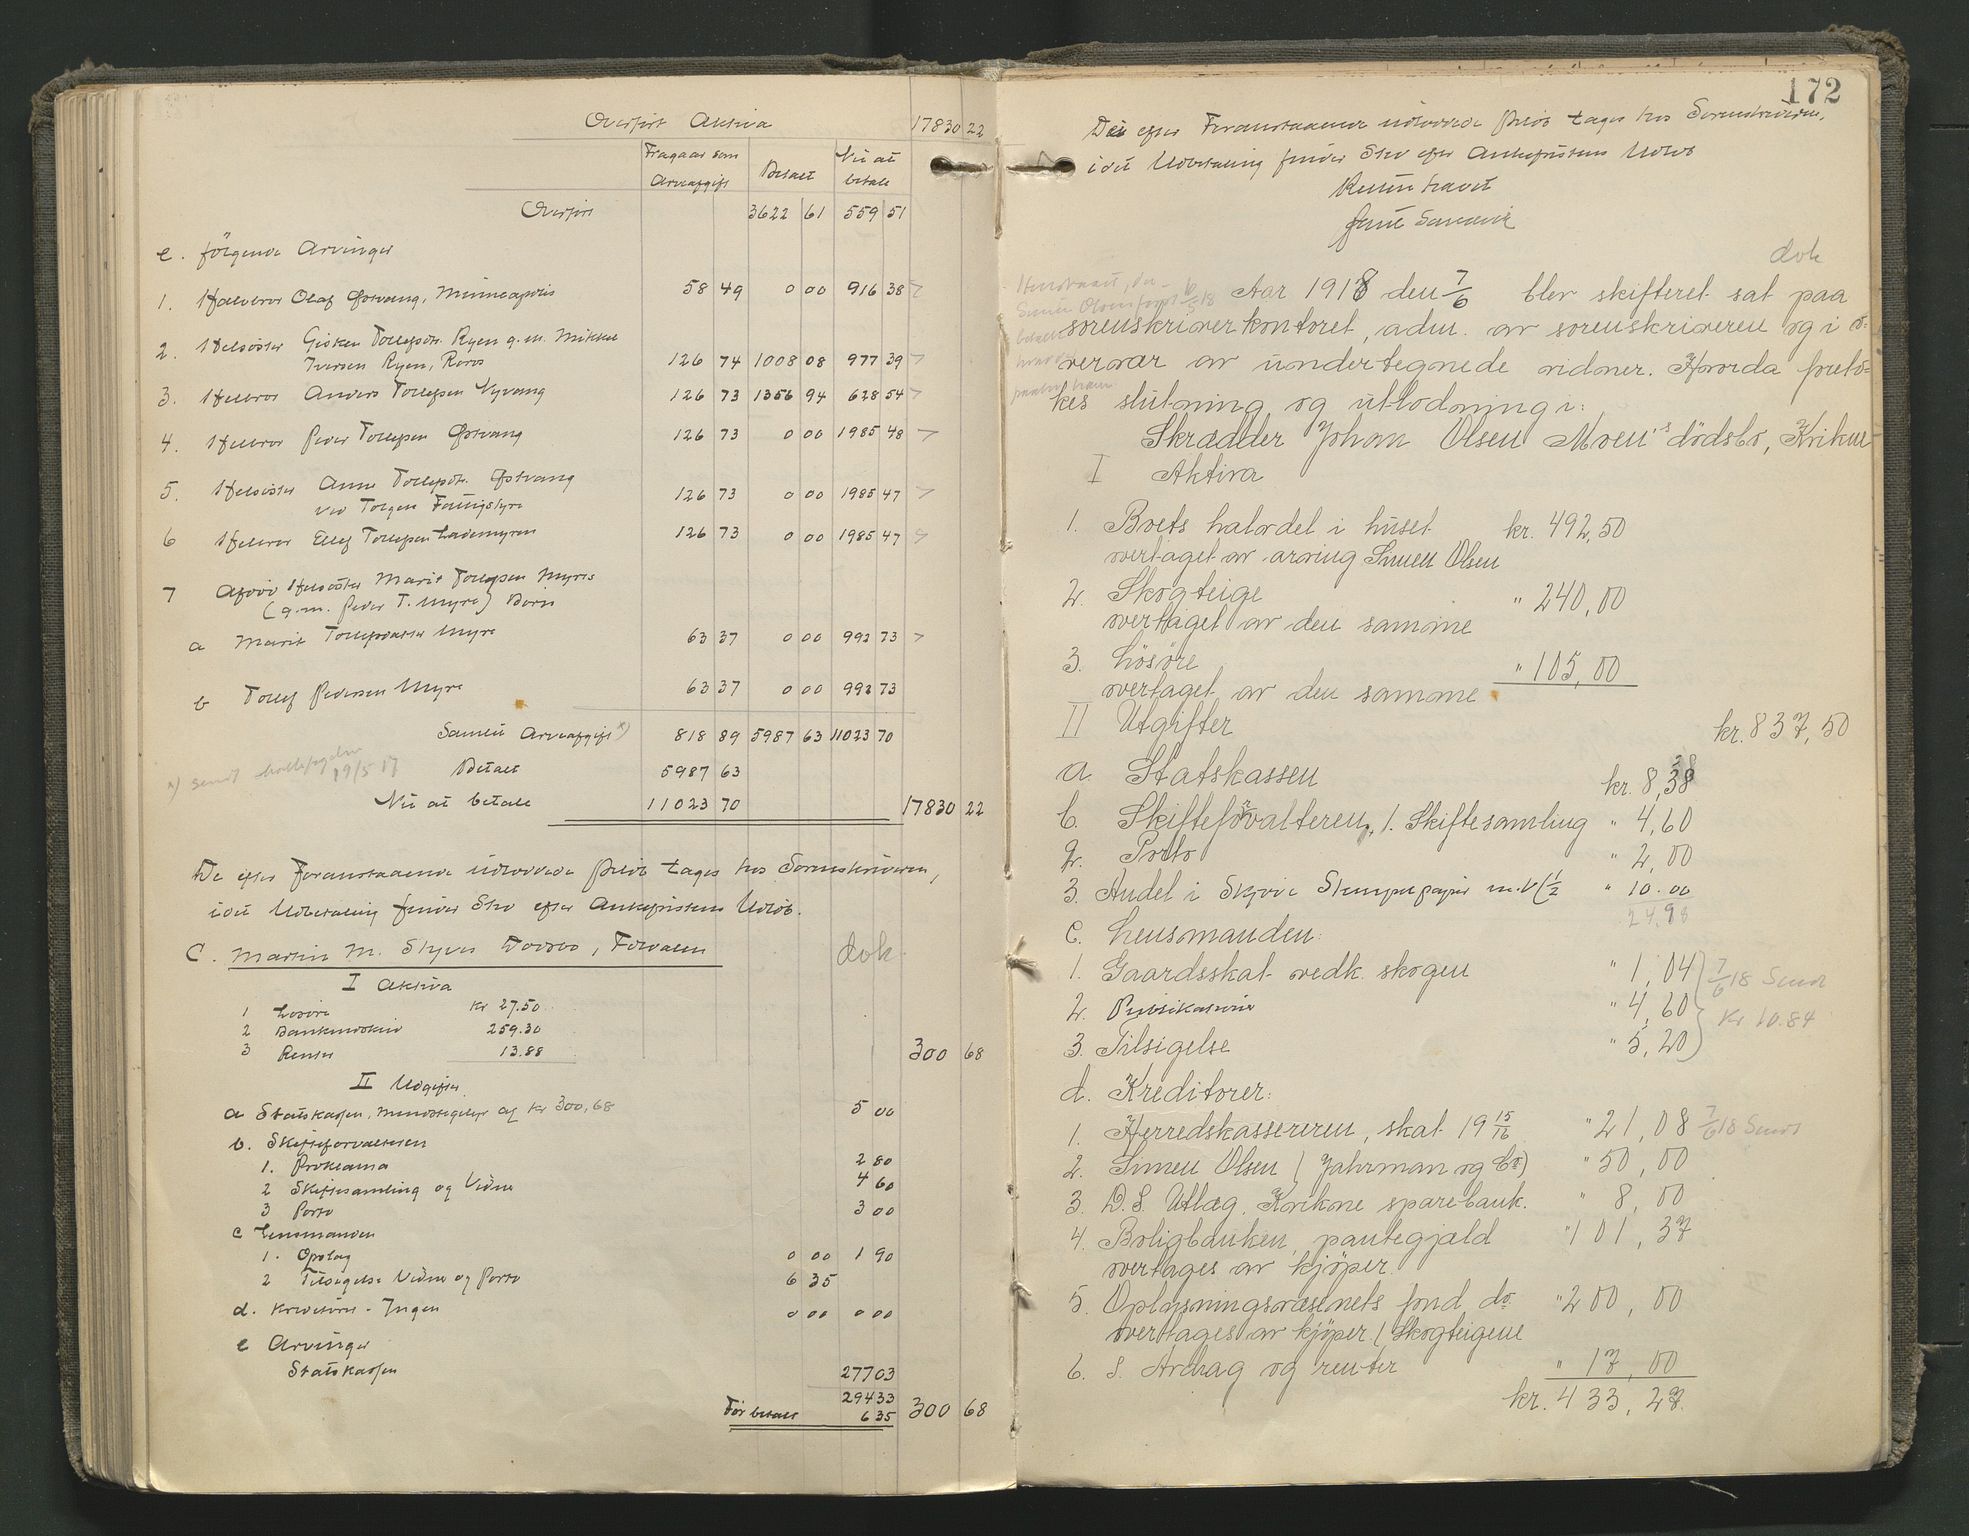 Overført Aktiva 17830 22
Fragaar som Arveafgift Betalt Nu at betale
Overført 3622 61 559 51
e. følgende Arvinger
1. Halvbror Olaf Østvang, Minneapolis 58 49 0 00 916 38
2. Helsøster Gisken Tollefsdtr. Ryen g.m. Mikkel
Iversen Ryen, Røros 126 74 1008 08 977 39
3. Helbror Anders Tollefsen Vyvang 126 73 1356 94 628 54
4. Helbror Peder Tollefsen Østvang 126 73 0 00 1985 48
5. Helsøster Anne Tollefsdtr. Østvang
ved Torgen 126 73 0 00 1985 47
6 Helbror Ellef Tollefsen Lademyren 126 73 0 00 1985 47
7 Afdød Helsøster Marit Tollefsen Myres
(g.m. Peder T. Myre) Børn
a Marit Myre 63 37 0 00 992 73
b Tollef Pedersen Myre 63 37 0 00 992 73
Samlet Arveafgift x) 818 89 5987 63 11023 70
x) sendt 19/5 17
Betalt 5987 63
Nu at betale 11023 70 17830 22
De efter Foranstaaende udlodde Beløb tages hos Sorenskriveren,
idet Udbetaling finder Sted efter Ankefristens Udløb.
C. Martin M. Skyes Dødsbo, Tolvalen dok.
I Aktiva
1 Løsøre Kr 27.50
2 Bankindskud 259.30
3 Renter 13.88 300 68
II Udgifter
a Statskassen, mindstegebyr af Kr 300,68 5 00
b. Skifteforvalteren
1. Proklama 2 80
2 Skiftesamling og Vidne 4 60
3 Porto 3 00
c Lensmanden
1. Opslag 0 00 1 90
2 Tilsigelse Vidne og Porto 6 35
d. Kreditorer - Ingen 0 00 0 00
e Arvinger
Statskassen 277 03
294 33
Før betalt 6 35 300 68
172
De efter Foranstaaende udlodde Beløb tages hos Sorenskriveren,
idet Udbetaling finder Sted efter Ankefristens Udløb
Retten hævet
dok
Aar 1918 den 7/6 blev skifteret sat paa
sorenskriverkontoret, adm. av sorenskriveren og i o-
vervær av undertegnede vidner. Hvorda foreto-
kes slutning og utlodning i:
Skrædder Johan Olsen Moen's dödsbo, Kvikne
I Aktiva
1. Boets halvdel i huset kr. 492,50
overtaget av arving Simen Olsen
2. Skogteige " 240,00
overtaget av den samme
3. Lösöre " 105,00
overtaget av den samme
II Utgifter kr. 837,50
a. Statskassen kr. 8,38
b. Skifteforvalteren, 1. Skiftesamling " 4,60
2. Porto " 2,00
3. Andel i Skjöde Stempelpapir m.v. (1/2 " 10.00
24,98
c. Lensmanden:
1. Gaardsskat vedk. skogen " 1,04
7/6 18 Sendt
2. Publikation " 4,60
Kr 10.84
3. Tilsigelse " 5,20
d. Kreditorer:
1. Herredskassereren, skat 19 15/16 " 21,08 7/6 18 Sendt
2. Simen Olsen (Jahrman og Co) " 50,00
3. D. S. Utlæg, Kvikne sparebank. " 8,00
4. Boligbanken, pantegjæld " 101,37
overtages av kjöper.
5. Oplysningsvæsenets fond do " 200,00
overtages av kjöper (Skogteigene
6. S. Ardhag og renter " 17,00
kr. 433,27.